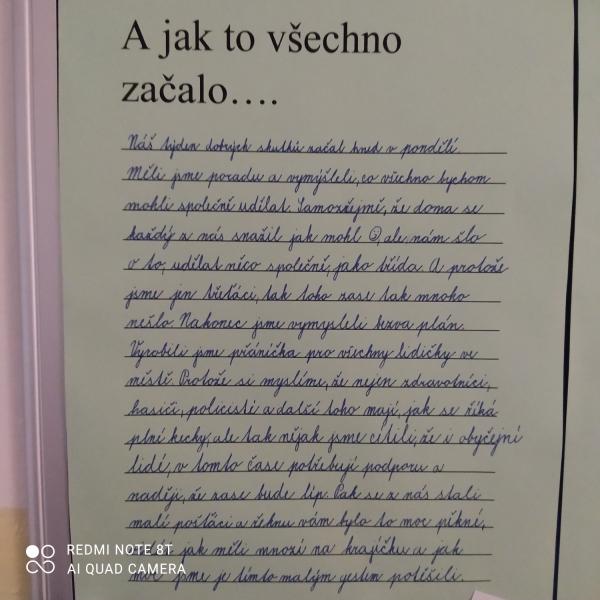 A jak to všechno
začalo....
Náš týden dobrých skutků začal hned v pondělí.
Měli jsme poradu a vymýšleli, co všechno bychom
mohli společně udělat. Samozřejmě, že doma se
každý z nás snažil jak mohl ☺, ale nám šlo
o to, udělat něco společně, jako třída. A protože
jsme jen třeťáci, tak toho zase tak mnoho
nešlo. Nakonec jsme vymysleli bezva plán.
Vyrobili jsme přáníčka pro všechny lidičky ve
městě. Protože si myslíme, že nejen zdravotníci,
hasiči, policisté a další toho mají, jak se říká
plné kecky, ale tak nějak jsme cítili, že i obyčejní
lidé, v tomto čase potřebují podporu a
naději, že zase bude líp. Pak se z nás stali
malí pošťáci a řeknu vám bylo to moc pěkné,
vidět jak měli mnozí na krajíčku a jak
moc jsme je tímto malým gestem potěšili.
REDMI NOTE 8T
AI QUAD CAMERA